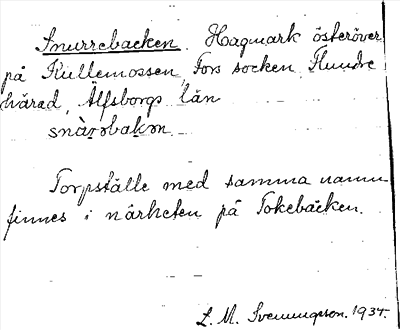 Snurrebacken. Hagmark österöver
på Kullemossen, Fors socken, Flundre
härad, Älfsborgs län
snàrəbakən.
Torpställe med samma namn
finnes i närheten på Tokebacken.
L. M. Svenungsson. 1934.